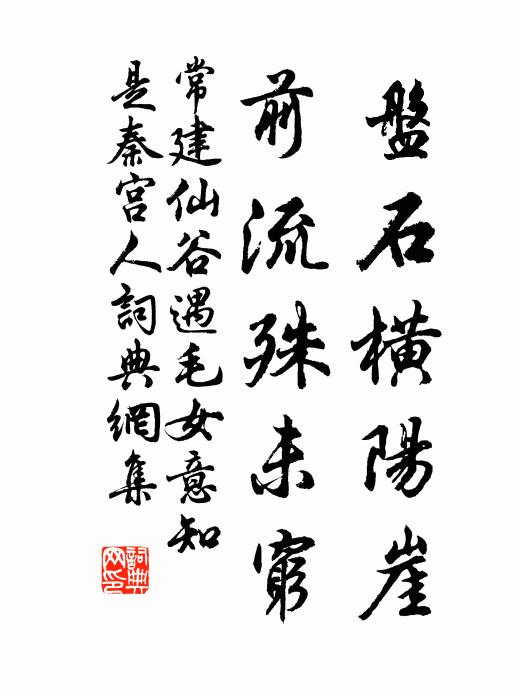 盤石橫陽崖
前流殊未窮
常建仙谷遇毛女意知
是秦宮人詞典網集
詞典
网印